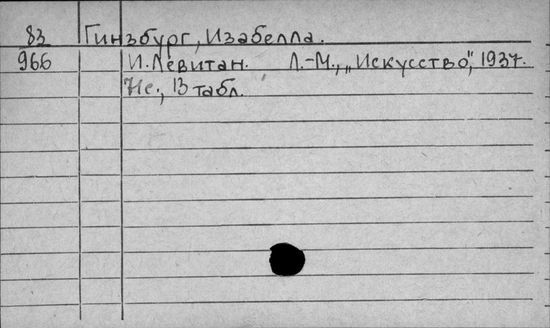 83 Гинзбург, Изабелла.
966 И. Левитан. Л.-М., „Искусство”, 1937.
13 табл.